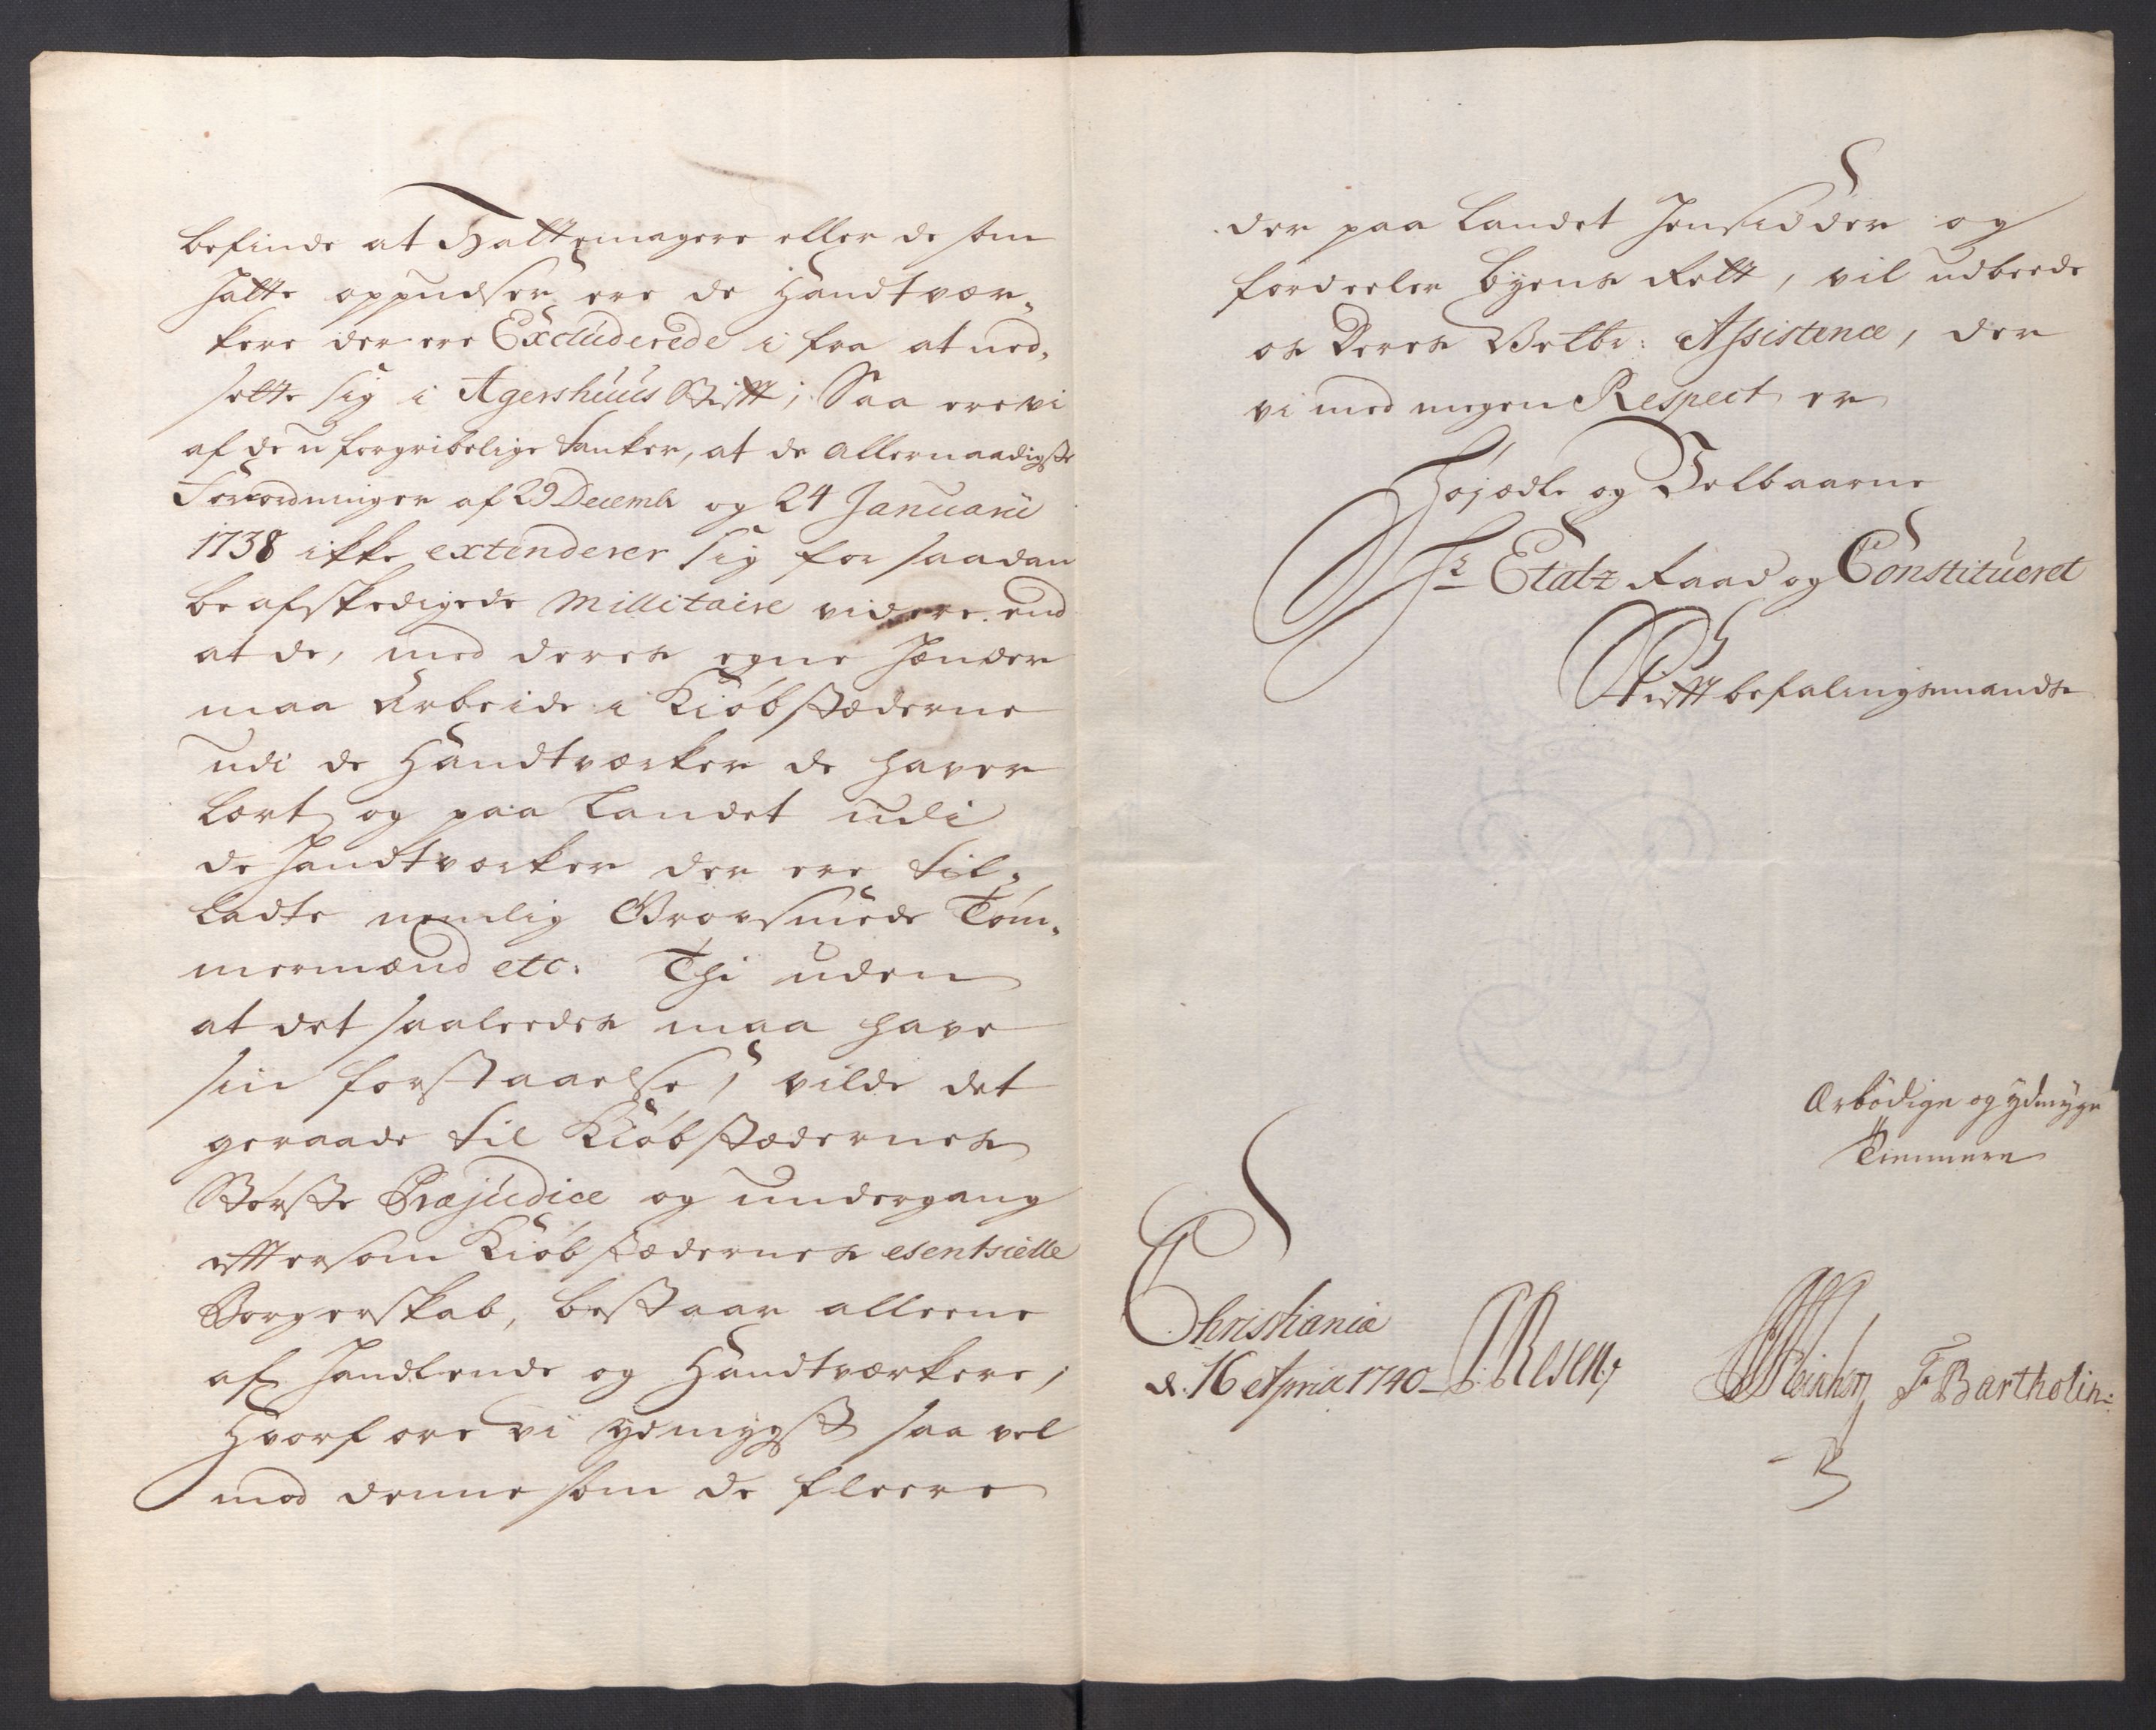 befinde at Hattemagere eller de som
Hatte oppudser ere de Handtvær„
kere der ere Excluderede i fra at ned„
sette sig i Agershuus Stift; Saa ere vi
af de uforgribelige tanker, at de allernaadigste
Forordninger af 29 Decembr og 24 Januarii
1738 ikke extenderer sig for saadan
beafskedigede Millitaire videre end
at de, med deres egne Hænder
maa Arbeide i Kiøbstæderne
udi de Handtværker de haver
lært og paa Landet udi
de Handtværker der ere til„
ladte nemlig Grovsmede Tøm„
mermænd etc: Thi uden
at det saaledes maa have
sin forstaaelse, vilde det
geraade til Kiøbstædernes
Største Præjudice og undergang
eftersom Kiøbstædernes esentsielle
Borgerskab, bestaar alleene
af Handlende og Handtværkere;
Hvorfore vi ydmygst saa vel
mod denne som de fleere
der paa Landet Hensidder og
fordeeler Byens Rett, vil udbeede
os Deres Velbr: Assistence, der
vi med megen Respect er
Højædle og Velbaarne
Hr Etatz Raad og Constitueret
Stiftbefalingsmands
Ærbödige og ydmyge
Tiennere
Christiania
d. 16 April 1740
Resen
F Bartholin: